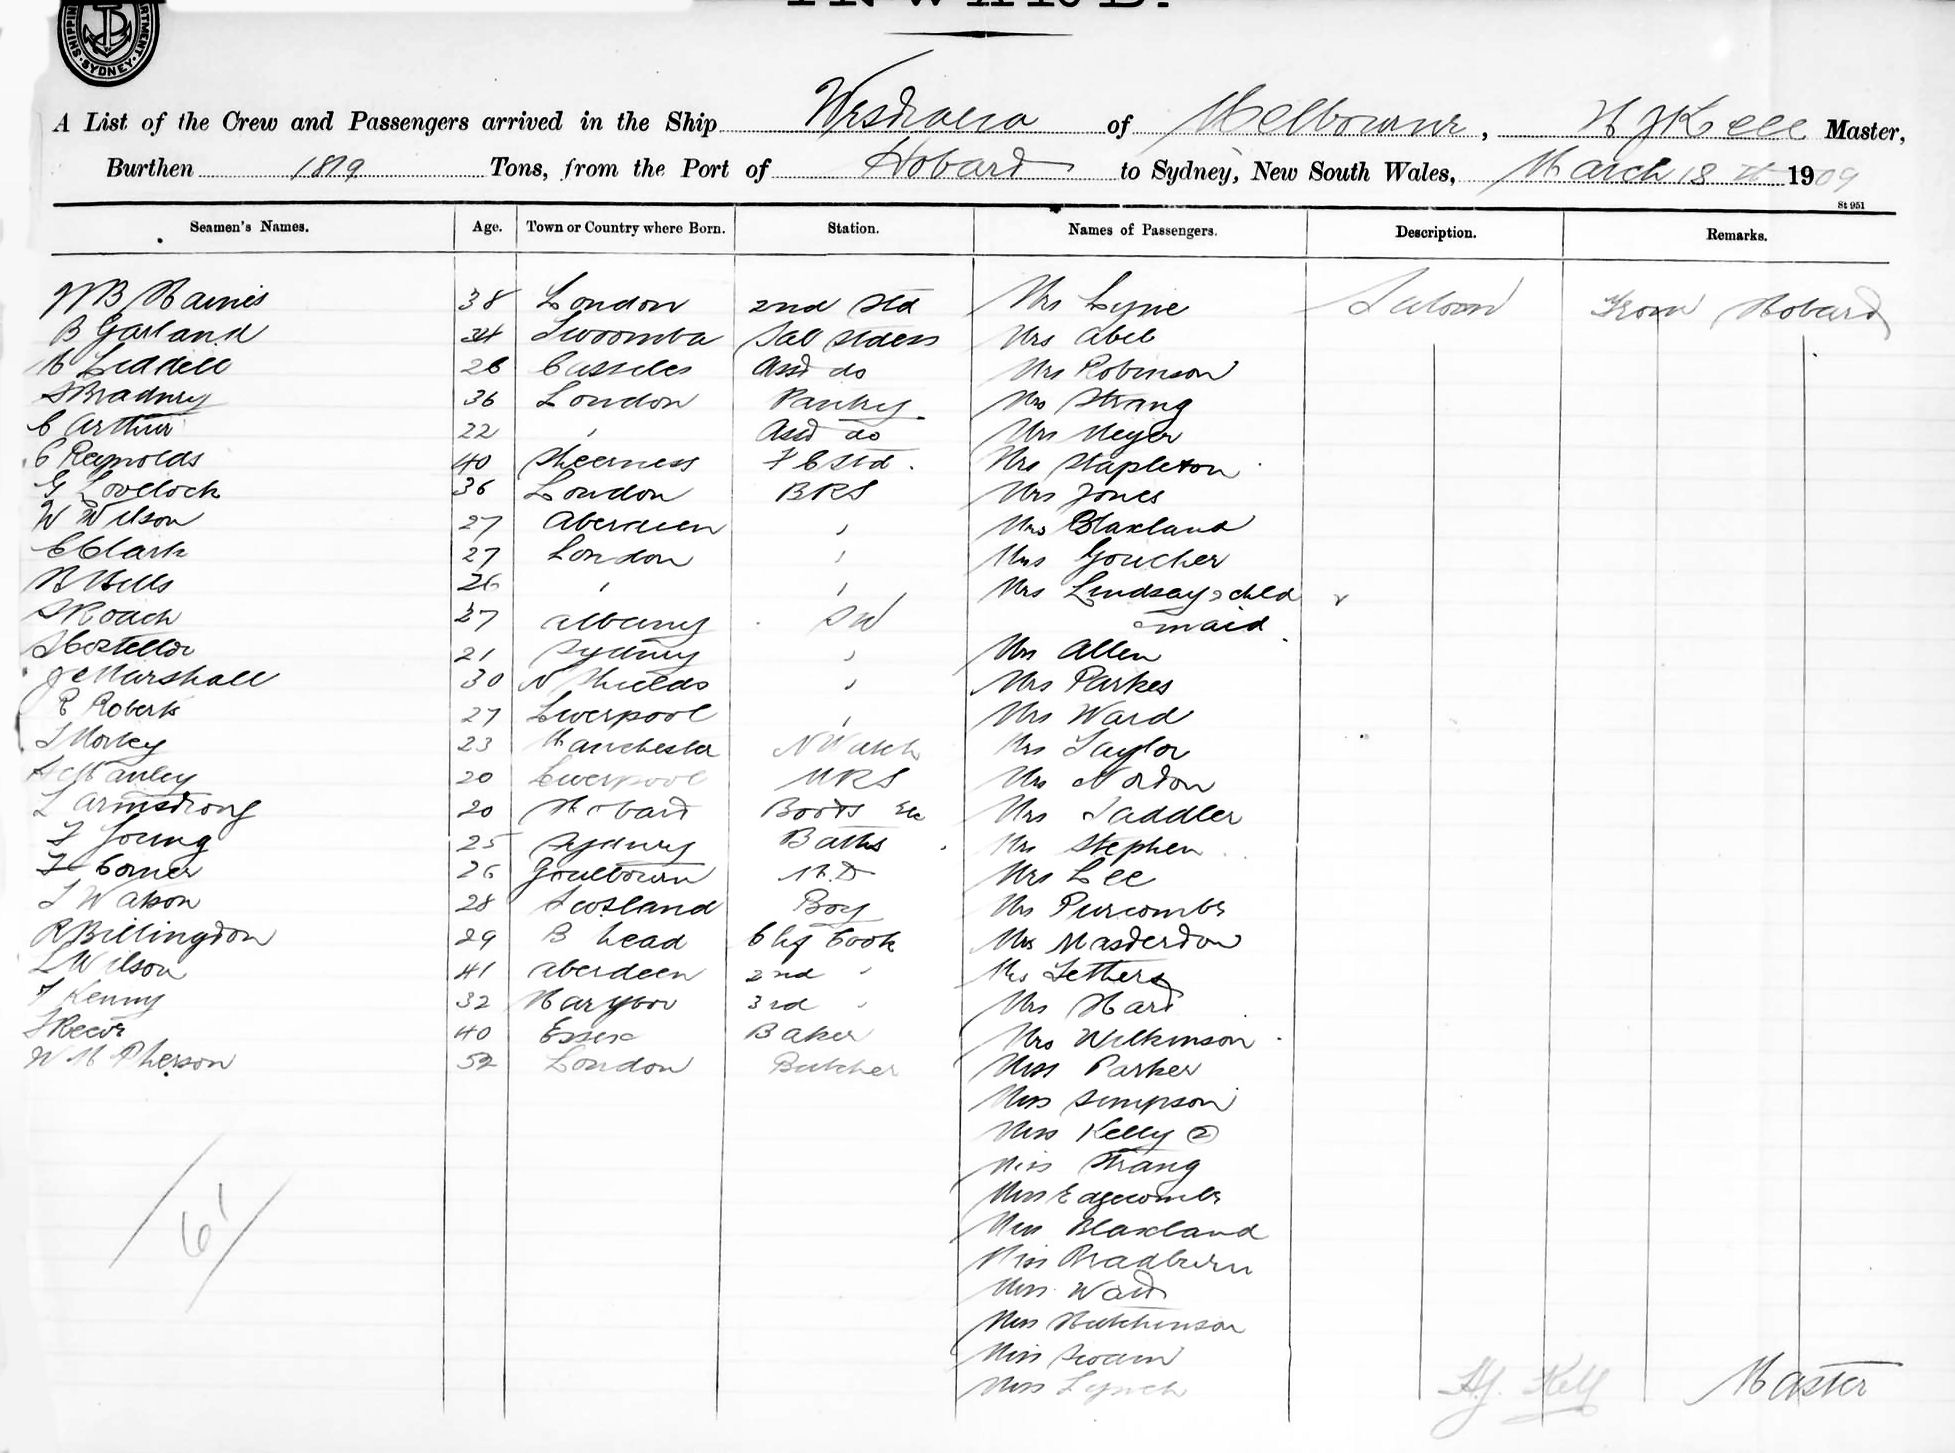 INWARD.
SYDNEY
A List of the Crew and Passengers arrived in the Ship Westralia of Melbourne, H J Kell Master,
Burthen 1819 Tons, from the Port of Hobart to Sydney, New South Wales, March 18th 1909
St 951
Seamen's Names. Age. Town or Country where Born. Station. Names of Passengers. Description. Remarks.
38 London 2nd Std Mrs Lyne Saloon From Hobart
B Garland 34 Twoomba Sal Stdess Mrs Abel
Liddell 26 Asst do Mrs Robinson
S Bradney 36 London Pantry Mrs Strang
C Arthur 22 " Asst do Mrs Meyer
C Reynolds 40 Sheerness F C Std. Mrs Stapleton
G Lovelock 36 London BRS Mrs Jones
W Wilson 27 Aberdeen " Mrs Blaxland
E Clark 27 London " Mrs Goucher
H Bills 26 " " Mrs Lindsay, child
S Roach 37 Albany SW maid
S Costello 21 Sydney " Mrs Allen
J C Marshall 30 N Shields " Mrs Parkes
R Roberts 27 Liverpool " Mrs Ward
T Morley 23 Manchester N Watch Mrs Taylor
Manley 20 Liverpool MRS Mrs Nordon
L Armstrong 20 Hobart Boots Etc Mrs Saddler
F Young 25 Sydney Baths Mrs Stephen
F Corner 26 Goulbourn Mrs Lee
T Watson 28 Scotland Boy Mrs Purcombe
R Billington 29 B head Chf Cook Mrs Masterton
L Wilson 41 Aberdeen 2nd " Mrs Tethers
F Kenny 32 Marybor 3rd " Mrs Hart
Reeve 40 Essex Baker Mrs Wilkinson
W McPherson 52 London Butcher Miss Parker
Miss Simpson
Miss Kelly (2)
Miss Strang
Miss Edgecombe
Miss Blaxland
Miss Bradburn
Miss Watt
Miss Hutchinson
Miss Swain
Miss Lynch
61
H.J. Kell Master